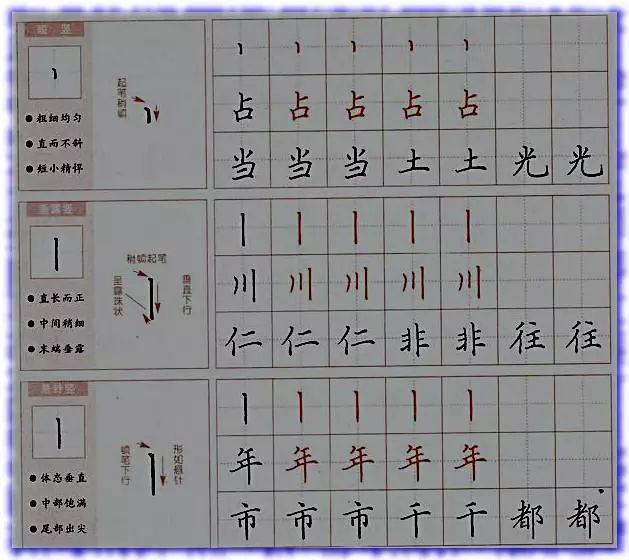 短竖
粗细均匀
直而不斜
短小精悍
起笔稍顿
占占占占占
当当当土土光光
垂露竖
直长而正
中间稍细
末端垂露
稍顿起笔
呈露珠状
垂直下行
川川川川川
仁仁仁非非往往
悬针竖
体态垂直
中部饱满
尾部出尖
顿笔下行
形如悬针
年年年年年
市市市干干都都